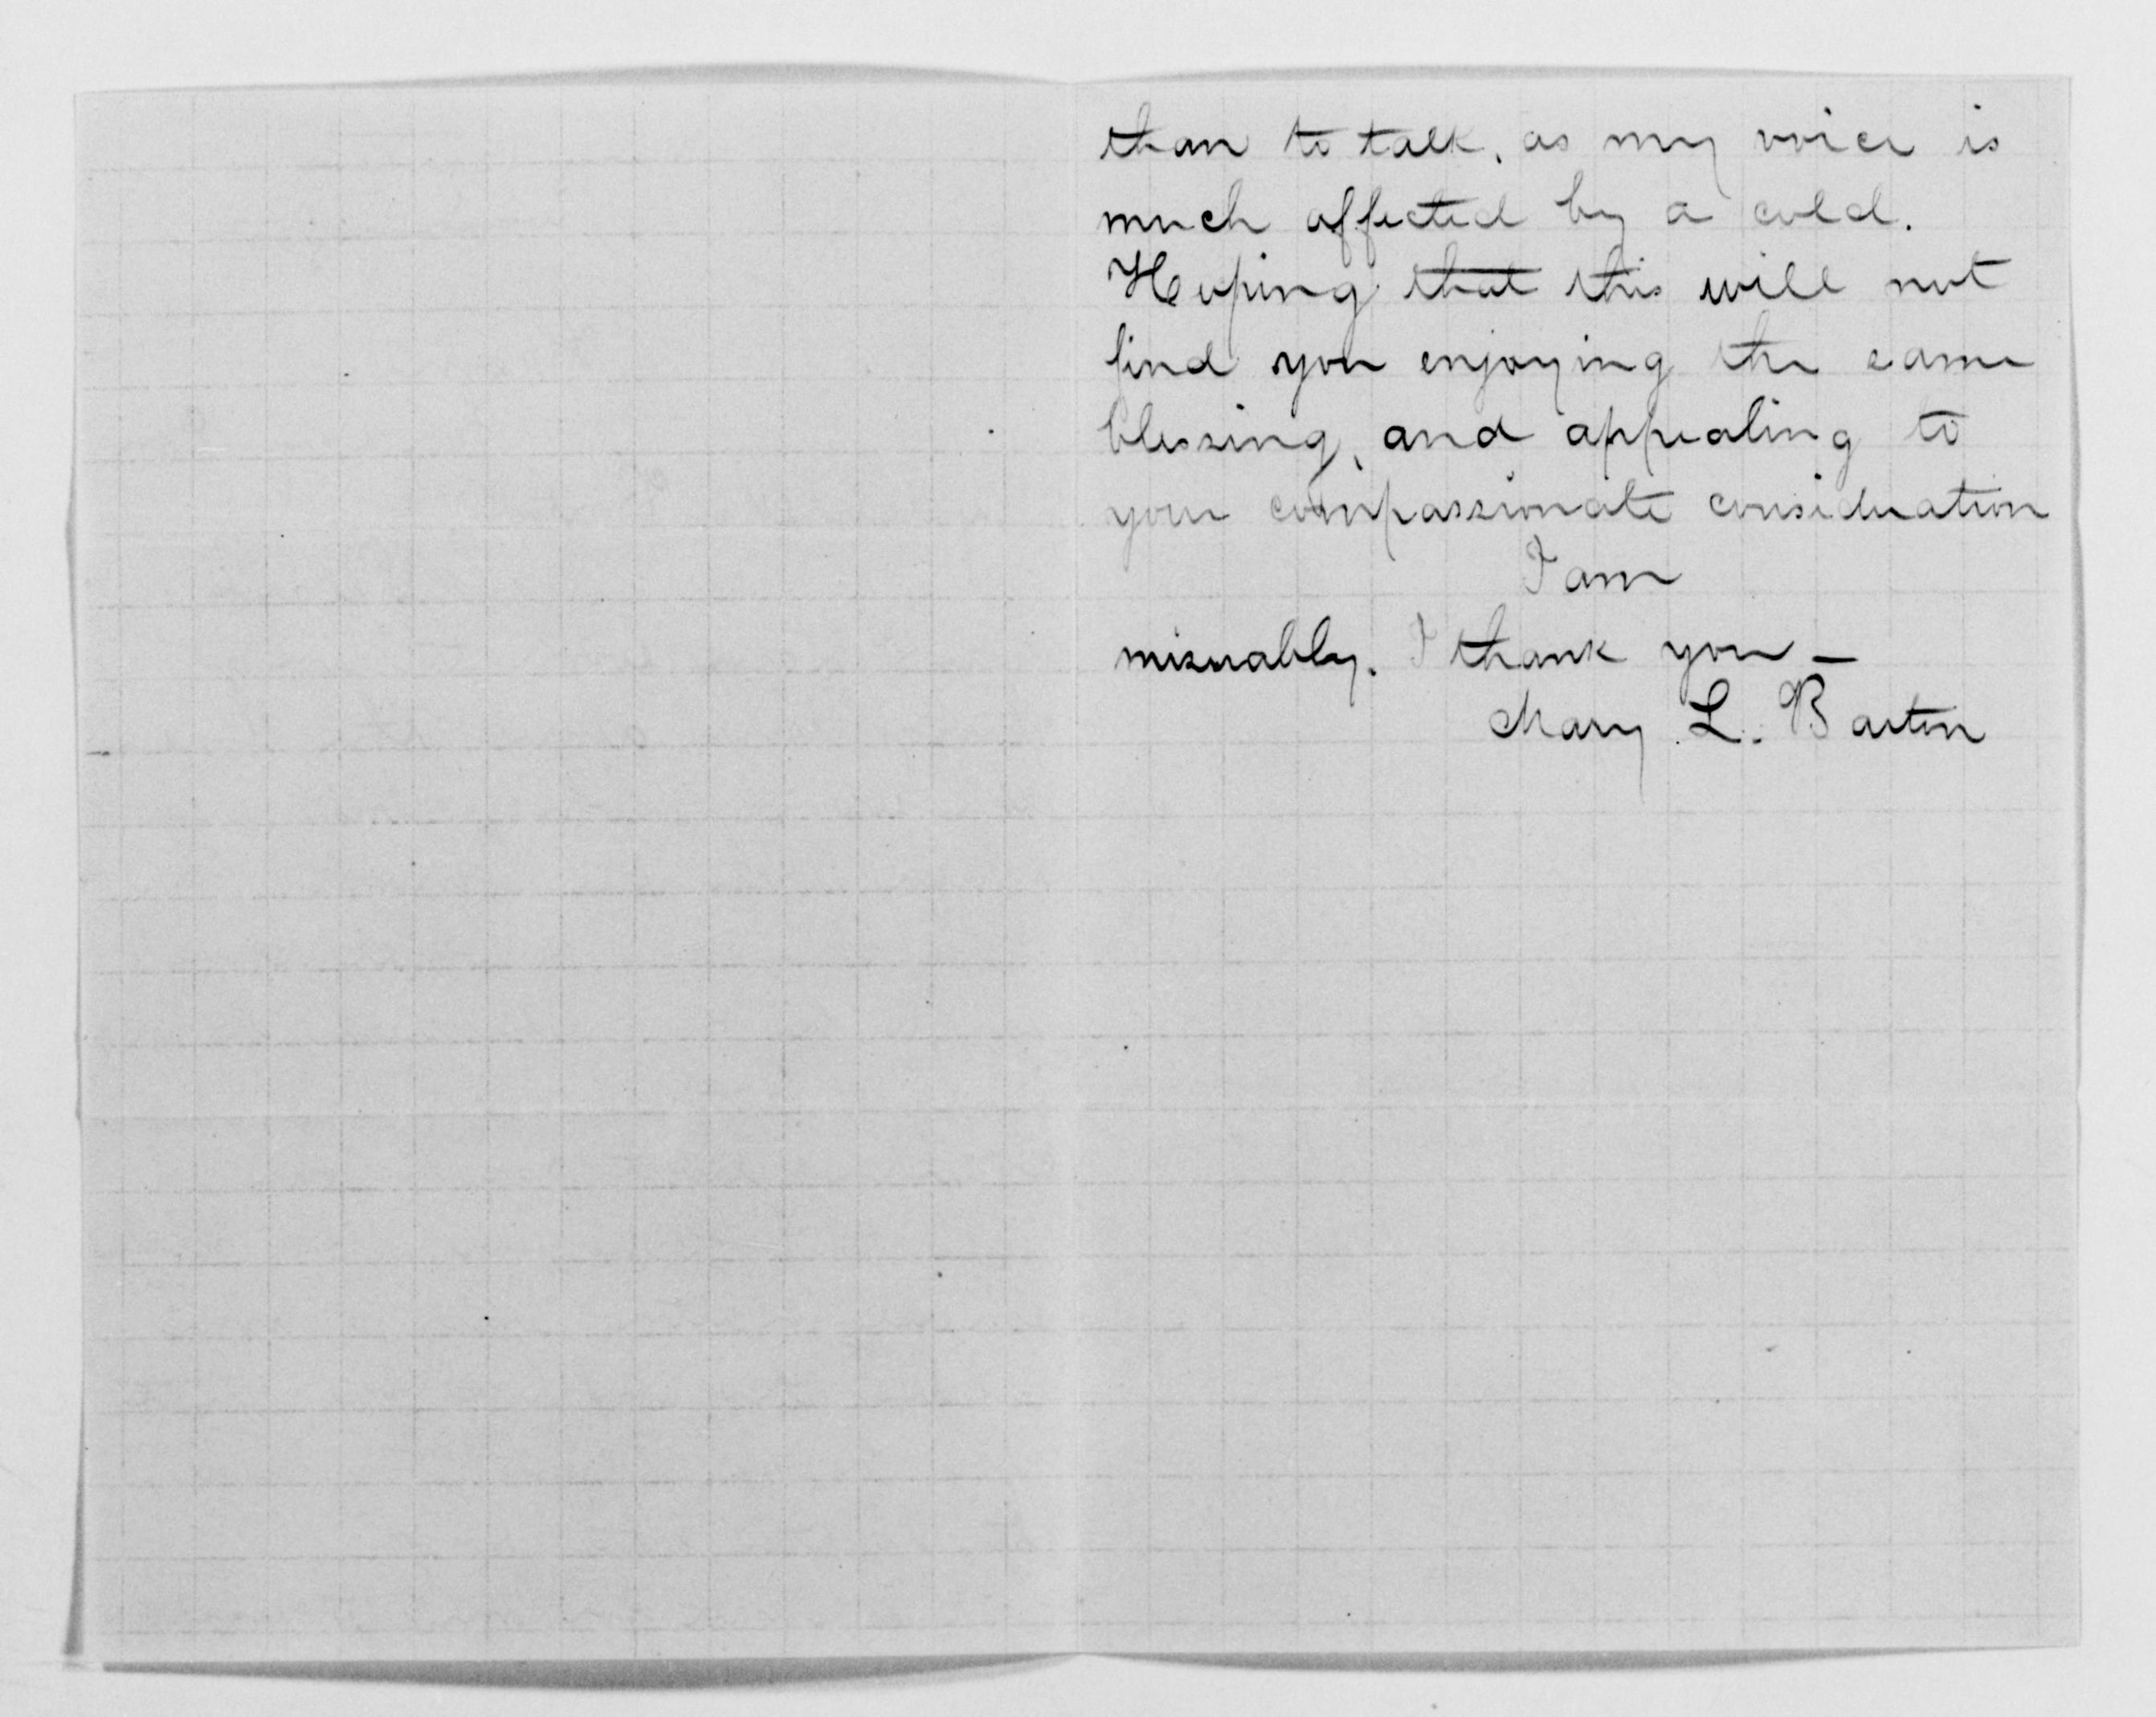 than to talk, as my voice is
much affected by a cold.
Hoping that this will not
find you enjoying the same
blessing, and appealing to
your compassionate consideration
I am
miserably. I thank you —
Mary L. Barton